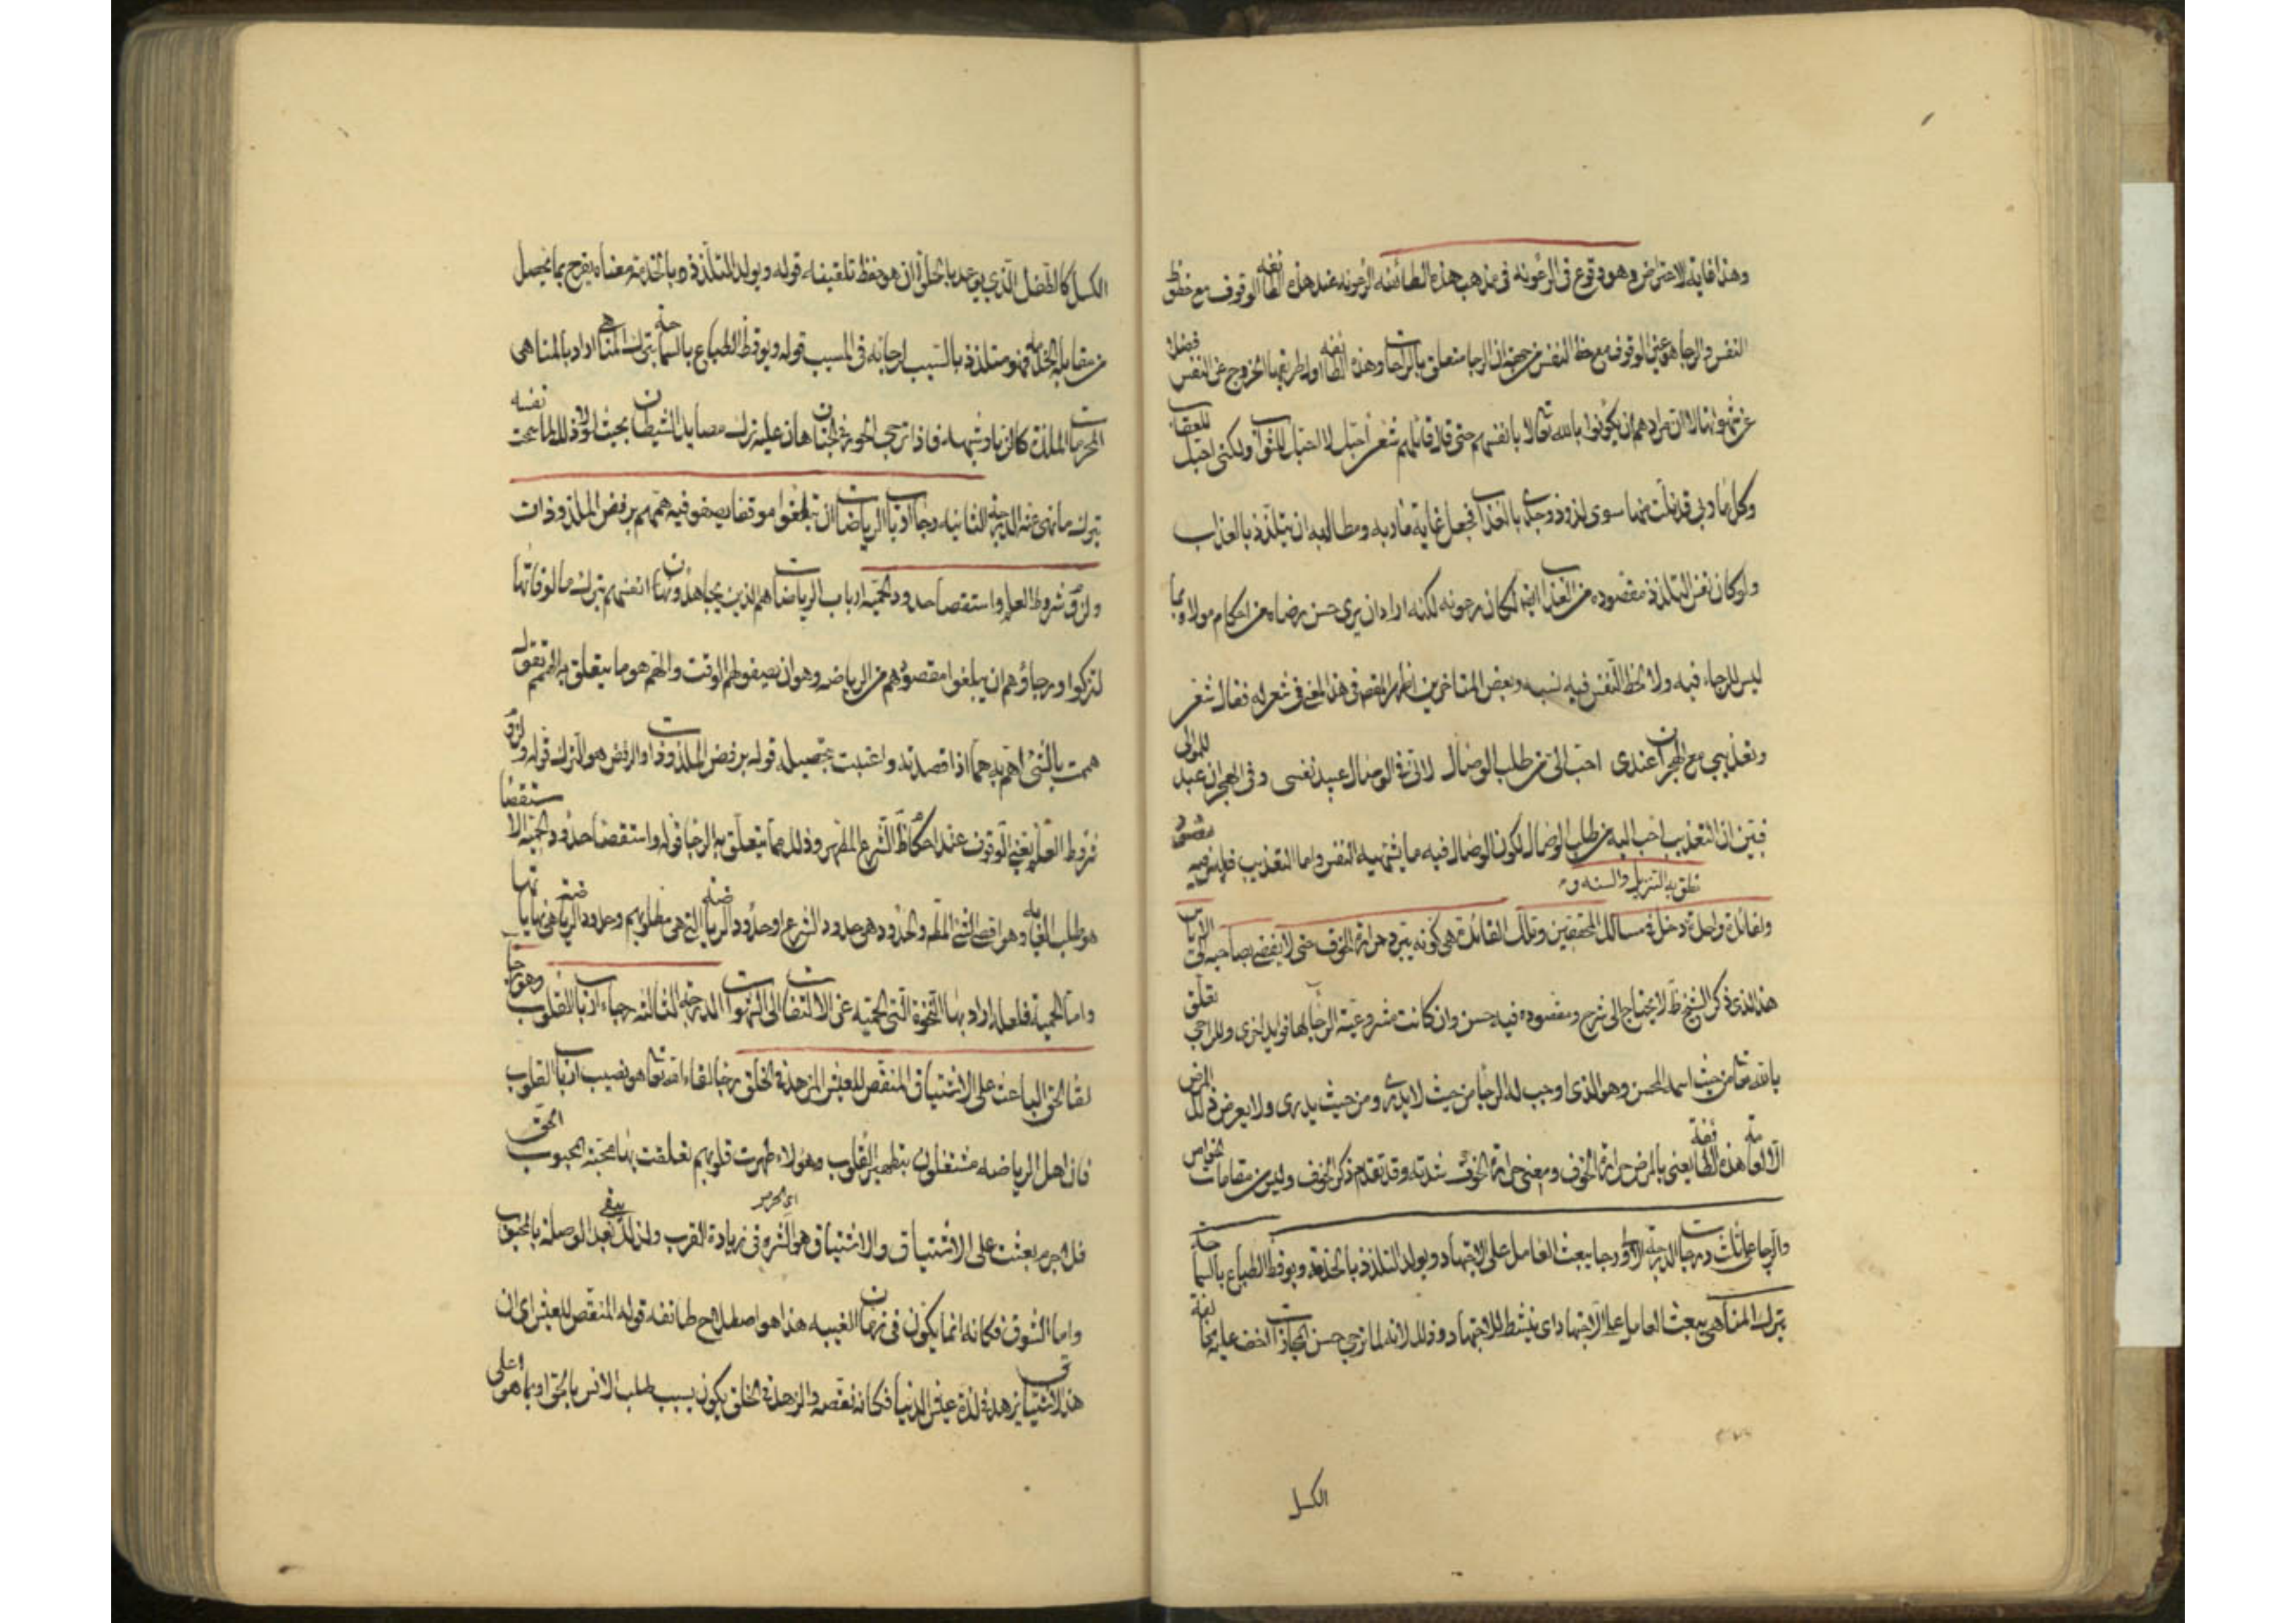 وهذا غاية الاعتراض وهو وقوع في الرعونه في مذهب هذه الطائفه الرعونه عند هذه الطائفه الوقوف مع حظوظ
النفس والرجا هو عين الوقوف مع حظ النفس من جهة ان الرجا متعلق بالراحات وهذه الطائفه اول طريقها الخروج عن النفس فضلا
عن شهواتها لان مرادهم ان يكونوا بالله تعالى لا بانفسهم حتى قال قائلهم شعر احبك لا احبك للثواب ولكني احبك للعقاب
وكل مآربي قد نلت منها سوى لذوذ وجدي بالعذاب فجعل غاية مآربه ومطالبه ان يتلذذ بالعذاب
ولو كان نفس التلذذ مقصوده من العذاب ايضا لكان رعونه لكنه اراد ان يرى حسن رضاه من احكام مولاه بما
ليس للرجاء فيه ولا لحظ النفس فيه نسبه وبعض المتاخرين اظهر المقصد في هذا المعنى في شعر له فقال شعر
وتعذيبي مع الهجران عندي احب الي من طلب الوصال لاني في الوصال عبيد نفسي وفي الهجران عبد للموالي
فبين ان التعذيب احب اليه من طلب الوصال لكون الوصال فيه ما يشتهيه النفس واما التعذيب فليس فيه مقصود
نطق به التنزيل والسنه و
ولفائدة واحدة دخل في مسالك المحققين وتلك الفائدة هي كونه يبرد حرارة الخوف حتى لا يفضي بصاحبه الى الاياس
هذا الذي ذكر الشيخ ظ لا يحتاج الى شرح ومقصوده فيه حسن وان كانت مشروعية الرجا بها فوايد اخرى وللراجي تعلق
بالله تعالى من حيث اسمه المحسن وهو الذي اوجب له الرجا من حيث لا يدري ومن حيث يدري ولا يعرض ذلك المرض
الا لعامة هذه الطائفة يعني بالمرض حرارة الخوف ومعنى حرارة الخوف شدته وقد تقدم ذكر الخوف وليس من مقامات الخواص
والرجا على ثلث درجات الدرجة الاولى رجا يبعث العامل على الاجتهاد ويولد التلذذ بالخدمة ويوقظ الطباع بالسماحة
بترك المناهي يبعث العامل على الاجتهاد اي ينشط للاجتهاد وذلك لانه لما ترجى حسن المجازات الخف عليه مخالفة
الكسل
الكسل كالفضل الذي يوعد بالخلق ان هو حفظ تلقيفه قوله ويولد التلذذ بالخدمة معناه يفرح بما يحصل
من مقابلة الخدمة فهو متلذذ بالسبب لرجائه في المسبب قوله ويوقظ الطباع بالسماحة بترك المناهي اراد بالمناهي
المحرمات الملذة كالزنا وشبهه فاذا ترجى الحور في الجنان هان عليه ترك مصايد الشيطان بحيث نفسه
بترك ما نهى عنه الدرجة الثانيه رجا ارباب الرياضات ان تبلغوا موقفا يصفو فيه هممهم برفض الملذوذات
ولزوم شروط العلم واستقصا حدود الحمية ارباب الرياضات هم الذين يجاهدون انفسهم بترك مالوفاتها
لتزكوا ورجاؤهم ان يبلغوا مقصودهم من الرياضه وهو ان يصفو لهم الوقت والهم هو ما يتعلق به الهمم تقول
هممت بالشي اهم به هما اذا قصدته واعتنيت بتحصيله قوله برفض الملذوذات والرفض هو الترك قوله ولزوم
شروط العلم يعني الوقوف عند احكام ظاهر الشرع المطهر وذلك مما يتعلق به الرجا قوله واستقصا حدود الحميه الاستقصا
هو طلب الغايه وهو اقصى الشي المطلم والحدود هي حدود الشرع او حدود الرياضه التي هي مطلوبهم وحدود الرياضة هي نهاياتها
واما الحمية فلعله اراد بها النخوة التي لحميه عن الالتفات الى الشهوات الدرجة الثالثه رجاء ارباب القلوب وهو رجا
لقا الحق الباعث على الاشتياق المنغص للعيش المزهد في الخلق رجا لقاء الله تعالى هو نصيب ارباب القلوب
فان اهل الرياضه مشتغلون بتطهير القلوب وهولاء طهرت قلوبهم تعلقت بها محبة المحبوب الحق
فلا جرم بعثت على الاشتياق والاشتياق هو الشره في زيادة القرب ولذلك يبقى بعد الوصلة بالمحبوب
واما الشوق فكانه انما يكون في زمان الغيبه هذا هو اصطلاح طائفه قوله المنغص للعيش اي ان
هذا الاشتياق يزهد في لذة عيش الدنيا فكانه نغصه والزهد في الخلق يكون بسبب طلب الانس بالحق او بما هو اعلى